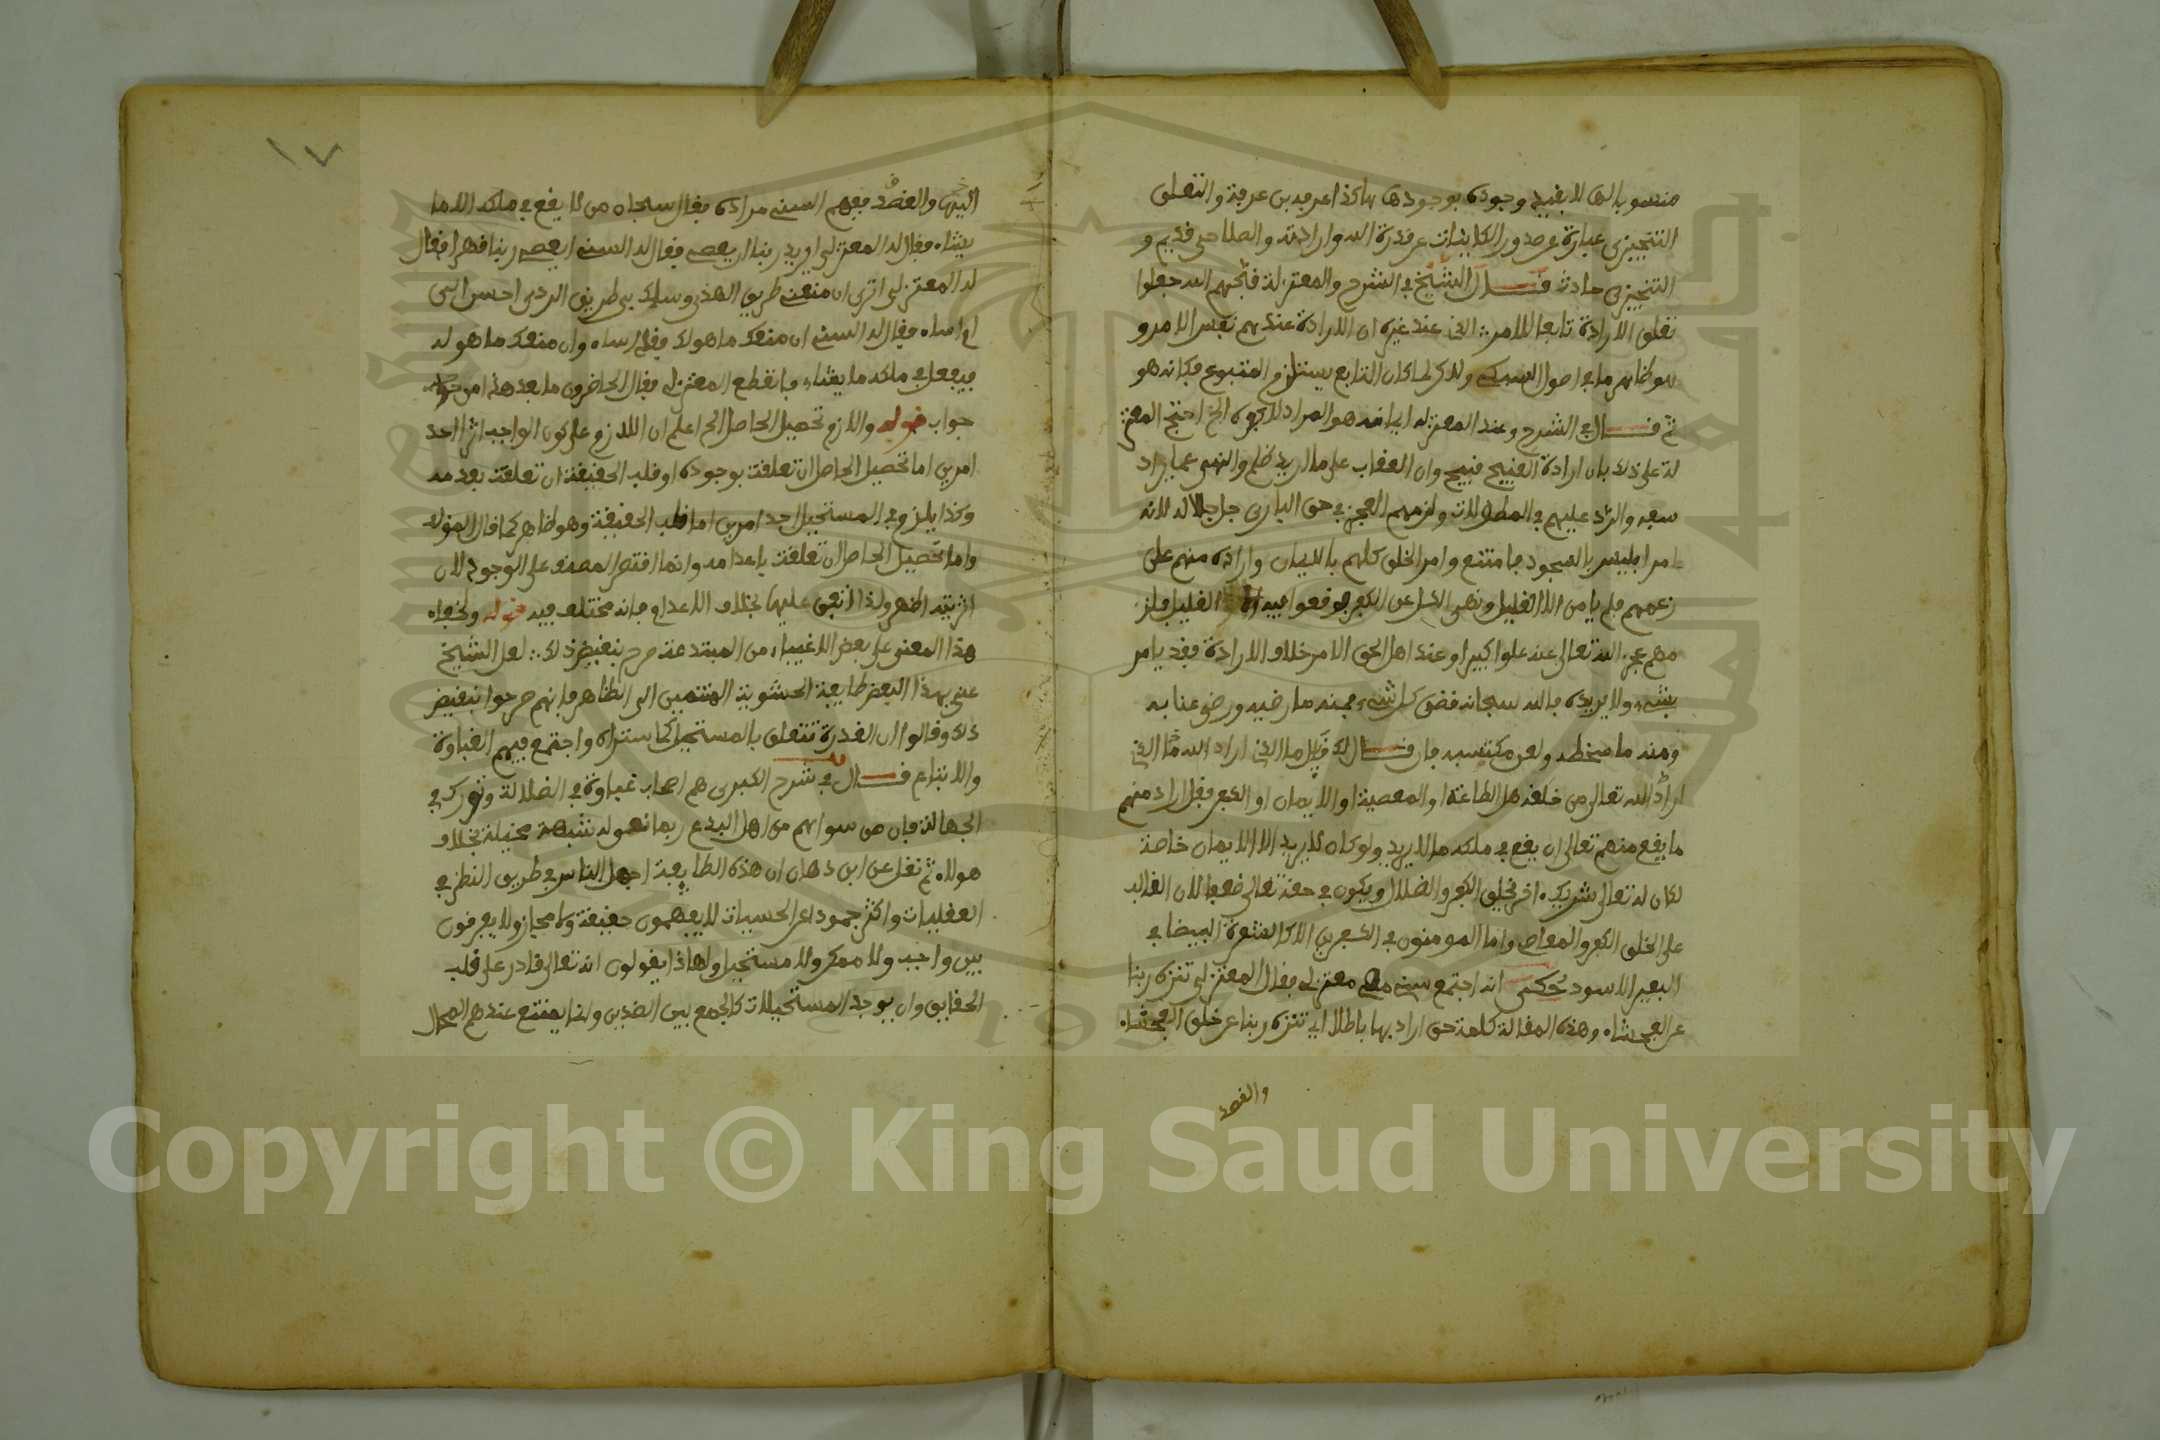 منسوبا لها لا بقيد وجوده بوجودها هاكذا عرفه بن عرفة والتعلق
التنجيزي عبارة عن صدور الكاينات عن قدرة الله وارادته والصلاحي قديم و
التنجيزي حادث قال الشيخ في الشرح والمعتزلة قبحهم الله جعلوا
تعلق الارادة تابعا للامر الذي عند غيره ان الارادة عندهم نفس الامر و
هو ظاهر ما في اصول السبكي ولاكن لما كان التابع يستلزم المتبوع فكانه هو
ثم قال في الشرح وعند المعتزلة ايمانه هو المراد لا كفره الخ احتج المعتز
لة على ذلك بان ارادة القبيح قبيح وان العقاب على ما اريد ظلم والنهي عما يراد
سفه والرد عليهم في المطولات ولزمهم العجز في حق الباري جل جلاله لانه
امر ابليس بالسجود فامتنع وامر الخلق كلهم بالايمان واراده منهم على
زعمهم فلم يامن الا القليل ونهى الكل عن الكفر فوقعوا فيه الا القليل فلز
مهم عجز الله تعالى عنه علوا كبيرا وعند اهل الحق الامر خلاف الارادة فقد يامر
بشيء ولا يريده فالله سبحانه قضى كل شيء فمنه ما رضيه ورضي عنا به
ومنه ما سخطه ولعن مكتسبه فان قال لك قايل ما الذي اراد الله ما الذي
اراد الله تعالى من خلقه هل الطاعة او المعصية او الايمان او الكفر فقل اراد منهم
ما يقع منهم تعالى ان يقع في ملكه ما لا يريد ولو كان لا يريد الا الايمان خاصة
لكان له تعالى شريك اخر يخلق الكفر والضلال ويكون في حقه تعالى ضعفا لان الغالب
على الخلق الكفر والمعاصي واما المومنون في الكفرين الا كالشعرة البيضا في
البعير الاسود حكي انه اجتمع سني مع معتزلي فقال المعتزلي تنزه ربنا
عن الفحشاء وهذه المقالة كلمة حق اراد بها باطلا اي تنزه ربنا عن خلق الفحشاء
والقصد
١٧
اليها والقصد ففهم السني مراده فقال سبحان من لا يقع في ملكه الا ما
يشاء فقال له المعتزلي ايريد ربنا ان يعصى فقال له السني ايعصى ربنا قهرا فقال
له المعتزلي اترى ان منعني طريق الهدى وسلك بي طريق الردى احسن الي
ام اساء فقال له السني ان منعك ما هو لك فقد اساء وان منعك ما هو له
فيفعل في ملكه ما يشاء فانقطع المعتزلي فقال الحاضرون ما بعد هذا من
جواب قوله والا لزم تحصيل الحاصل الخ اعلم ان اللازم على كون الواجب اثرا احد
امرين اما تحصيل الحاصل ان تعلقت بوجوده او قلب الحقيقة ان تعلقت بعدمه
وكذا يلزم في المستحيل احد امرين اما قلب الحقيقة وهو ظاهر كما قال المولف
واما تحصيل الحاصل ان تعلقت باعدامه وانما اقتصر المصنف على الوجود لان
اثريته اظهر ولذا اتفق عليها بخلاف الاعدام فانه مختلف فيه قوله ولخفاء
هذا المعنى على بعض الاغبياء من المبتدعة صرح بنقيض ذلك لعل الشيخ
عنى بهذا البعض طايفة الحشوية المنتمين الى الظاهر فانهم صرحوا بنقيض
ذلك وقالوا ان القدرة تتعلق بالمستحيل كما ستراه واجتمع فيهم الغباوة
والابتداع قال في شرح الكبرى هم اصحاب غباوة في الضلالة وتورك في
الجهالة فان من سواهم من اهل البدع ربما تصوله شبهة مخيلة بخلاف
هولاء ثم نقل عن ابن دهان ان هذه الطايفة اجهل الناس في طريق النظر في
العقليات واكثر جمودا على الحسيات لا يفهمون حقيقة ولا مجاز ولا يعرفون
بين واجب ولا ممكن ولا مستحيل ولهاذا يقولون الله تعالى قادر على قلب
الحقايق وان يوجد المستحيلات كالجمع بين الضدين وانما يمتنع عندهم المحال
Copyright © King Saud University